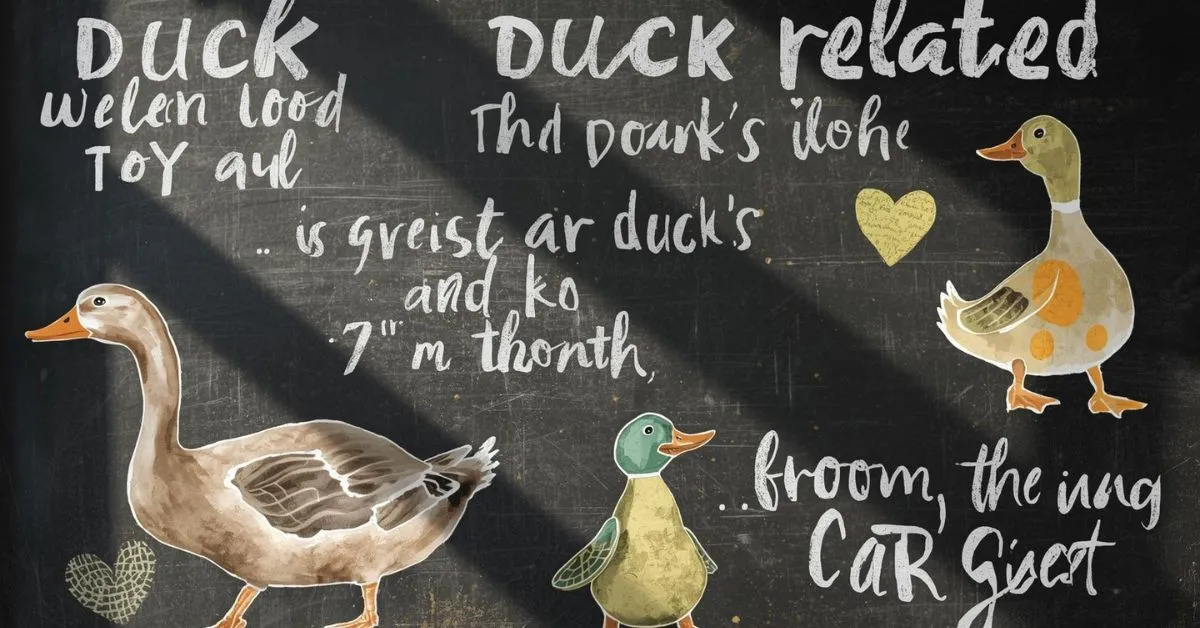 DUCK
welen lood
TOY aul
DUCK related
Thd Doark's ilohe
.. is greist ar duck's
and ko
7"" m thonth,
..froom, the iung
CaR Giest